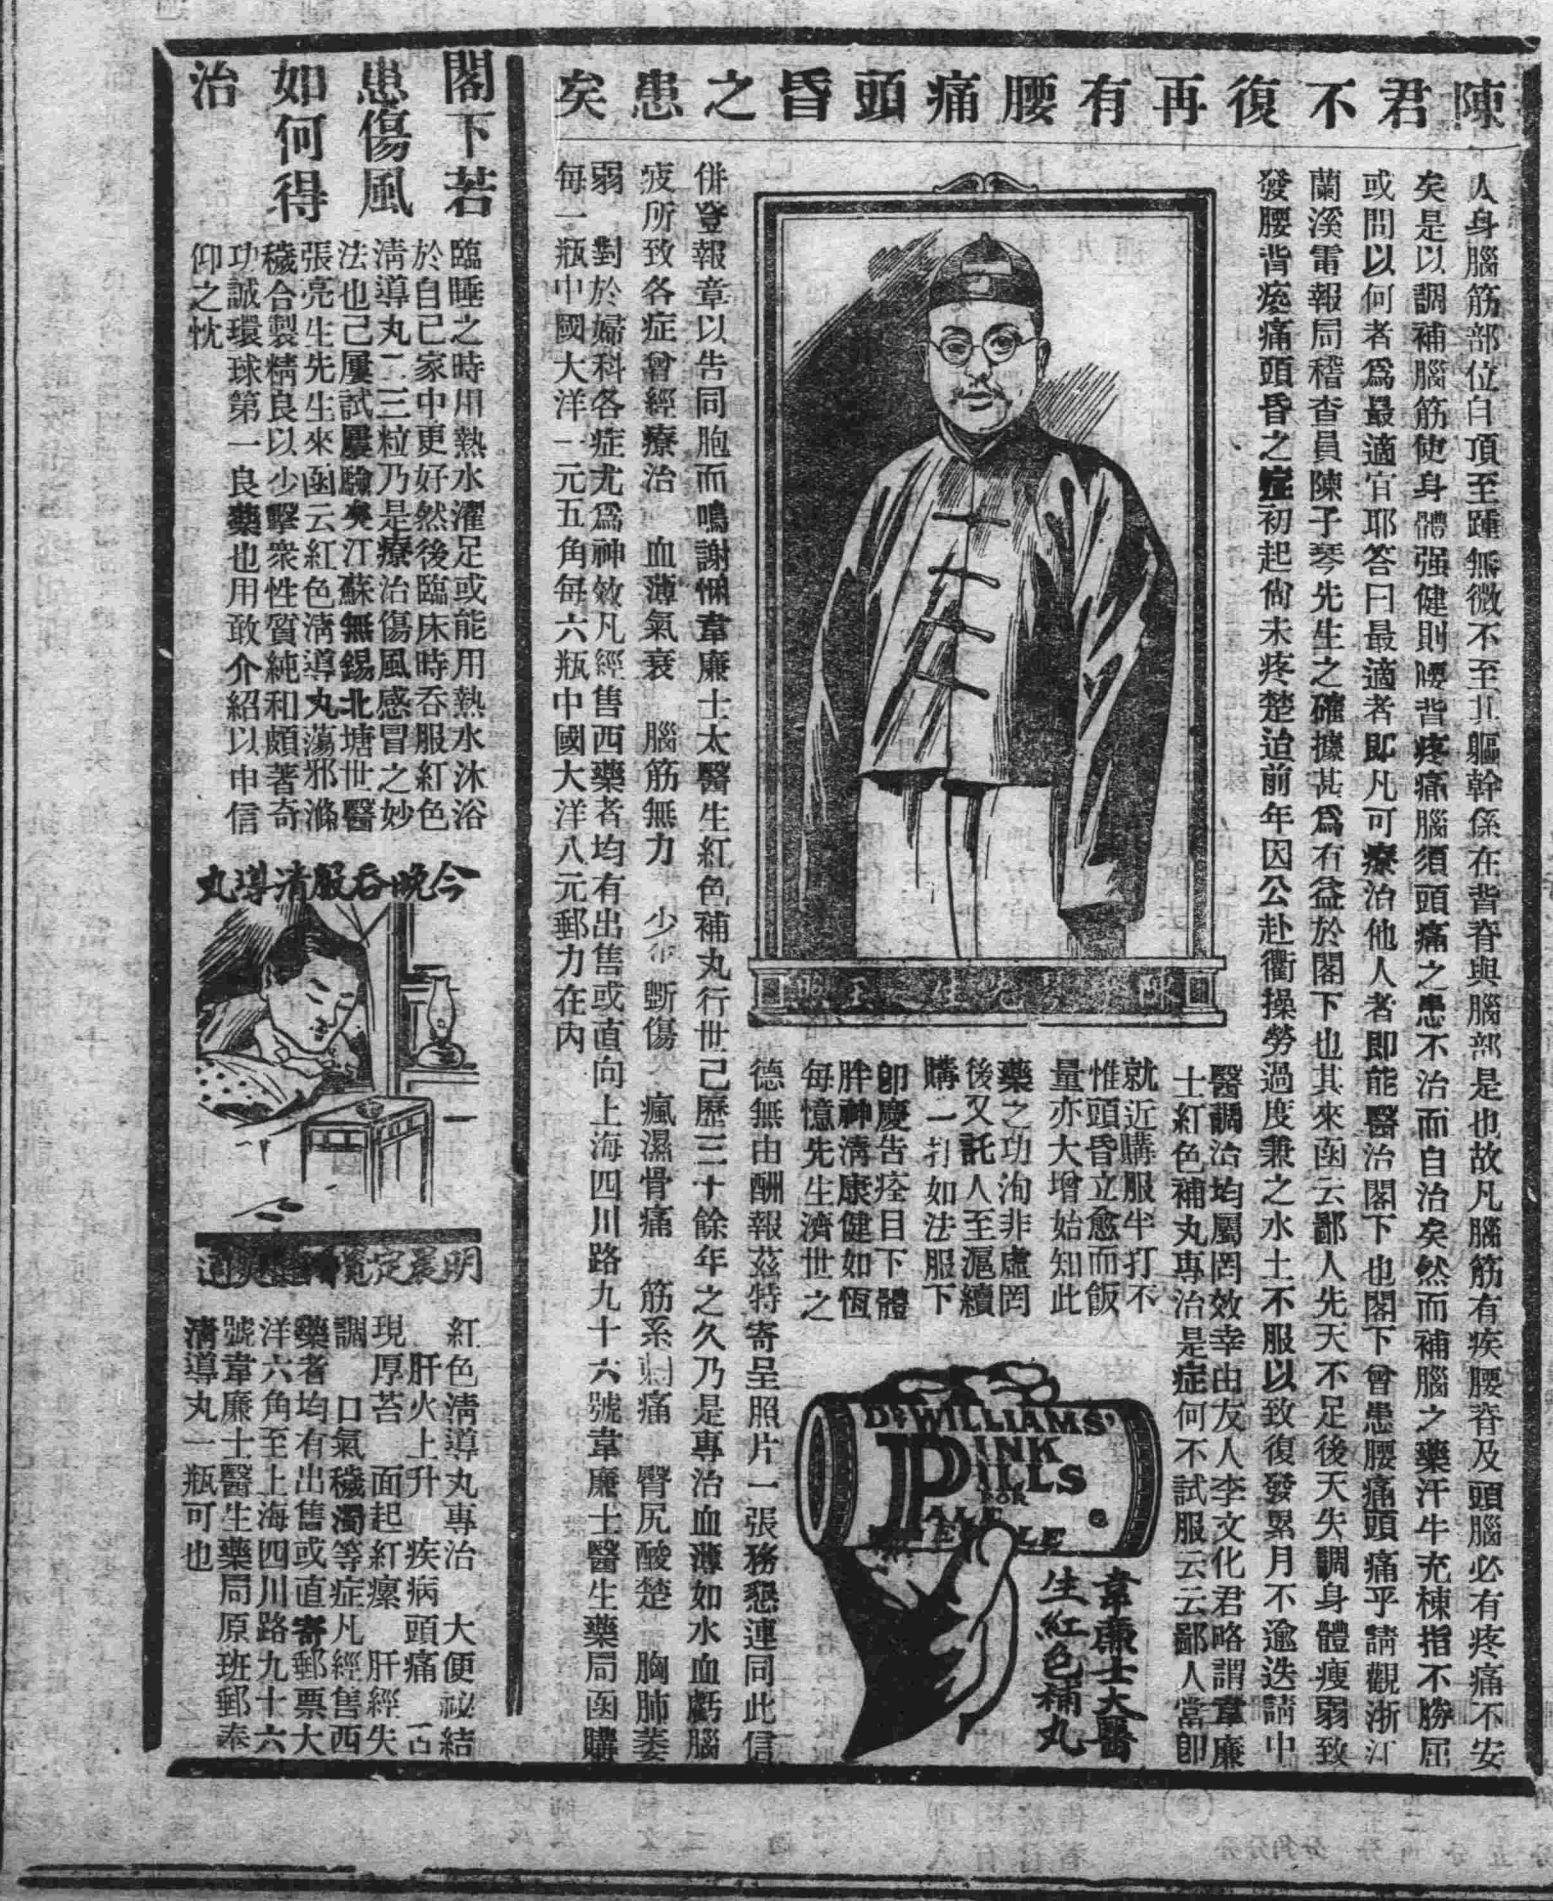 陳君不復再有腰痛頭昏之患矣
人身腦筋部位自頂至踵無微不至其軀幹係在背脊與腦部是也故凡腦筋有疾腰脊及頭腦必有疼痛不安
矣是以調補腦筋使身體强健則腰背疼痛腦須頭痛之患不治而自治矣然而補腦之藥汗牛充棟指不勝屈
或問以何者爲最適宜耶答曰最適者即凡可療治他人者即能醫治閣下也閣下曾患腰痛頭痛乎請觀浙江
蘭溪電報局稽查員陳子琴先生之確據甚爲有益於閣下也其來函云鄙人先天不足後天失調身體瘦弱致
發腰背痠痛頭昏之症初起尙未疼楚迨前年因公赴衢操勞過度兼之水土不服以致復發累月不逾迭請中
醫調治均屬罔效幸由友人李文化君略謂韋廉
士紅色補丸專治是症何不試服云云鄙人當卽
就近購服半打不
惟頭昏立愈而飯
量亦大增始知此
藥之功洵非虛罔
後又託人至滬續
購一打如法服下
卽慶告痊目下體
胖神淸康健如恆
每憶先生濟世之
德無由酬報茲特寄呈照片一張務懇連同此信
併登報章以告同胞而鳴謝悃韋廉士太醫生紅色補丸行世已歷三十餘年之久乃是專治血薄如水血虧腦
疲所致各症曾經療治 血薄氣衰 腦筋無力 少年斲傷 瘋濕骨痛 筋系刺痛 臀尻酸楚 胸肺萎
弱 對於婦科各症尤爲神效凡經售西藥者均有出售或直向上海四川路九十六號韋廉士醫生藥局函購
每一瓶中國大洋一元五角每六瓶中國大洋八元郵力在內
陳子琴先生之玉照
DR WILLIAMS'
PINK
PILLS
FOR
PALE
PEOPLE
韋廉士大醫
生紅色補丸
閣下若
患傷風
如何得
治
臨睡之時用熱水濯足或能用熱水沐浴
於自己家中更好然後臨床時吞服紅色
淸導丸二三粒乃是療治傷風感冒之妙
法也已屢試屢驗矣江蘇無錫北塘世醫
張亮生先生來函云紅色淸導丸蕩邪滌
穢合製精良以少擊衆性質純和頗著奇
功誠環球第一良藥也用敢介紹以申信
仰之忱
今晚吞服清導丸
明晨定覺爽適
紅色淸導丸專治 大便祕結
肝火上升 疾病頭痛 舌
現厚苔 面起紅瘰 肝經失
調 口氣穢濁等症凡經售西
藥者均有出售或直寄郵票大
洋六角至上海四川路九十六
號韋廉士醫生藥局原班郵奉
淸導丸一瓶可也